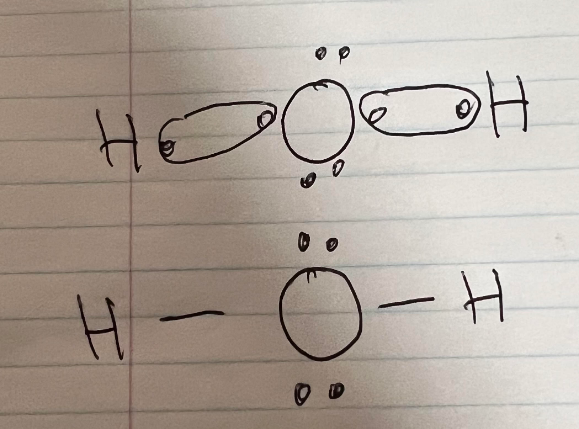 H O H
H — O — H